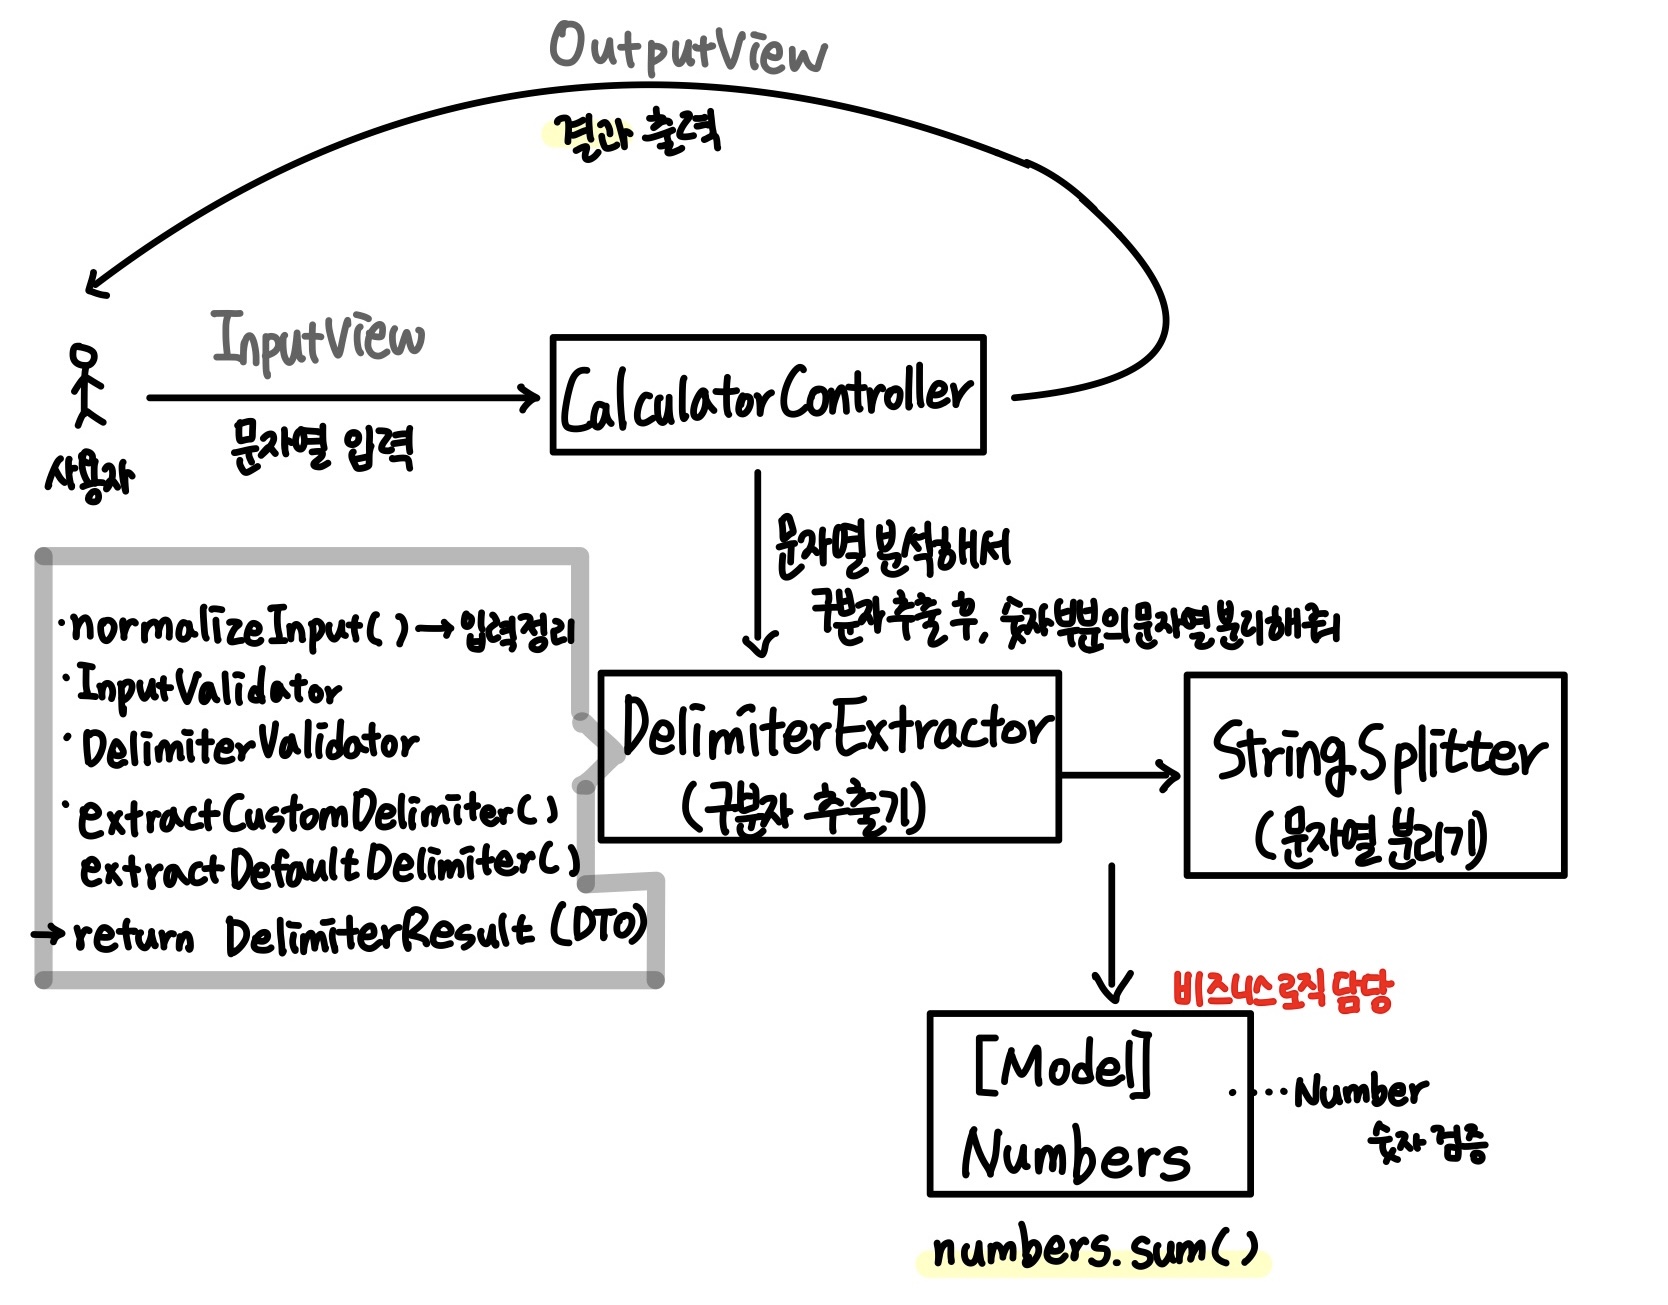 OutputView
결과 출력
InputView
문자열 입력
사용자
CalculatorController
문자열 분석해서
구분자 추출 후, 숫자부분의 문자열 분리해줘
· normalizeInput( ) → 입력정리
· InputValidator
· DelimiterValidator
· extractCustomDelimiter( )
extractDefaultDelimiter( )
→ return DelimiterResult (DTO)
DelimiterExtractor
(구분자 추출기)
StringSplitter
(문자열 분리기)
비즈니스로직 담당
[Model]
Numbers
···· Number
숫자 검증
numbers.sum( )